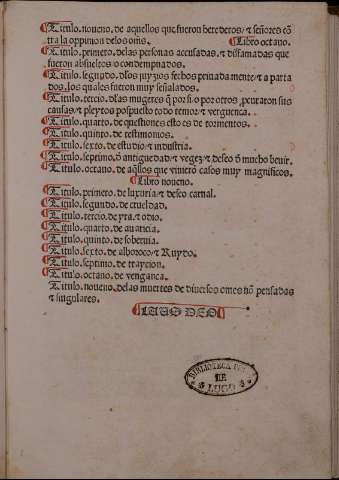 Titulo.noueno.de aquellos que fueron herederos/⁊ señores cõ
tra la oppinion delos oms. Libro octauo.
Titulo.primero.delas personas accusadas.⁊ disfamadas que
fueron absueltos o condempnados.
Titulo.segundo.dlos juyzios fechos priuada mente/⁊ a parta
dos.los quales fueron muy señalados.
Titulo.tercio.dlas mugeres q̃ por si o por otros ,pcuraron sus
causas/⁊ pleytos pospuesto todo temor/⁊ verguença.
Titulo.quarto.de questiones esto es de tormentos.
Titulo.quinto.de testimonios.
Titulo.sexto.de estudio/⁊ industria.
Titulo.septimo.d̃ antiguedad/⁊ vegez/⁊ deseo d̃ mucho beuir.
Titulo.octauo.de aq̃llos que vinierõ casos muy magnificos.
Libro noueno.
Titulo.primero.de luxuria/⁊ deseo carnal.
Titulo.segundo.de crueldad.
Titulo.tercio.de yra.⁊ odio.
Titulo.quarto.de auaricia.
Titulo.quinto.de soberuia.
Titulo.sexto.de alboroço/⁊ Ruydo.
Titulo.septimo.de traycion.
Titulo.octauo.de vengança.
Titulo.noueno.delas muertes de diuersos omes nõ pensadas
⁊ singulares.
LAUS DEO
BIBLIOTECA
DE
LUGO